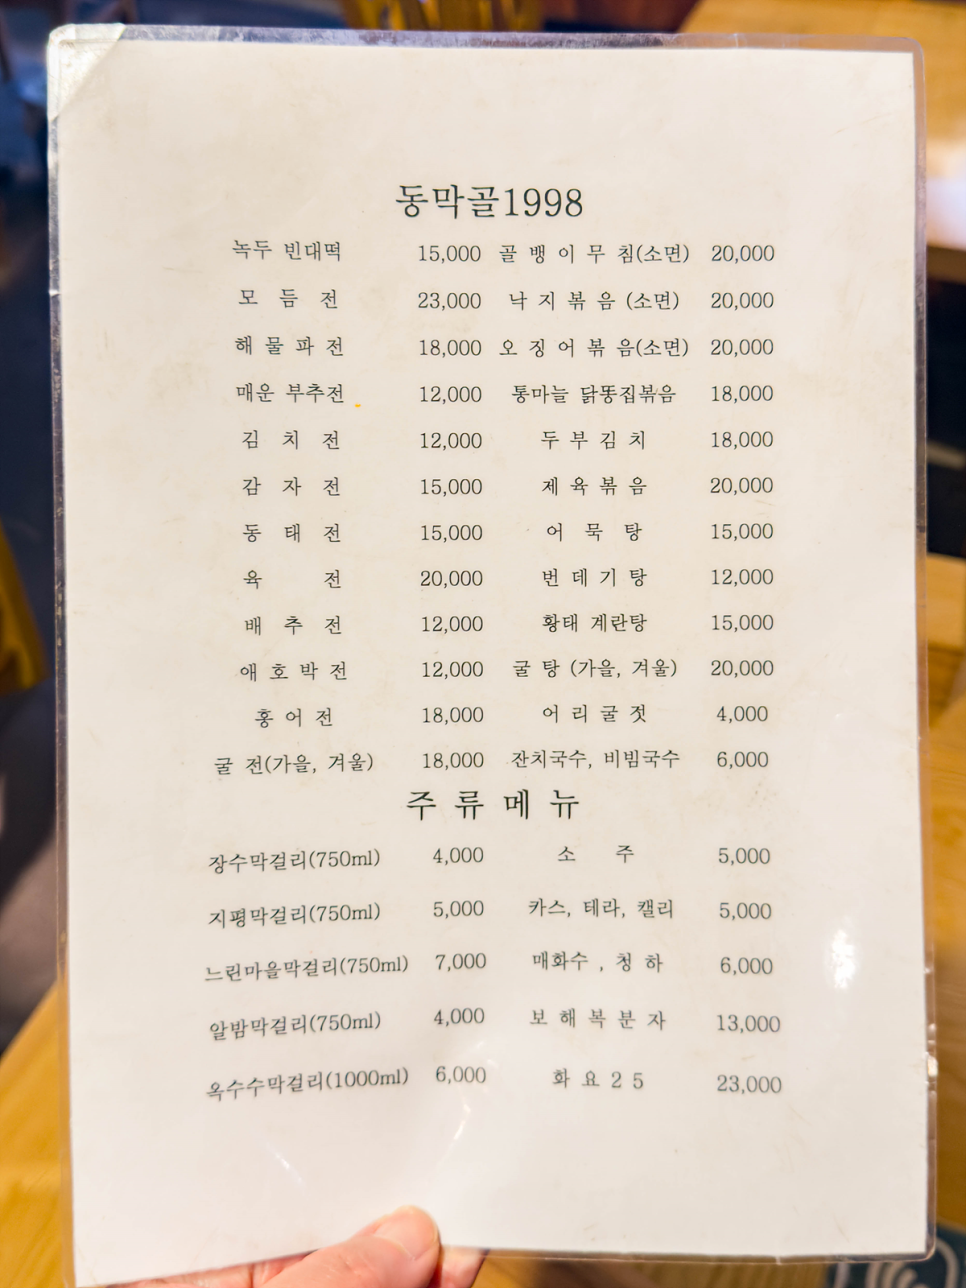 동막골1998
녹두 빈대떡 15,000 골 뱅 이 무 침(소면) 20,000
모 듬 전 23,000 낙 지 볶 음 (소면) 20,000
해 물 파 전 18,000 오 징 어 볶 음(소면) 20,000
매운 부추전 12,000 통마늘 닭똥집볶음 18,000
김 치 전 12,000 두 부 김 치 18,000
감 자 전 15,000 제 육 볶 음 20,000
동 태 전 15,000 어 묵 탕 15,000
육 전 20,000 번 데 기 탕 12,000
배 추 전 12,000 황태 계란탕 15,000
애 호 박 전 12,000 굴 탕 (가을, 겨울) 20,000
홍 어 전 18,000 어 리 굴 젓 4,000
굴 전(가을, 겨울) 18,000 잔치국수, 비빔국수 6,000
주 류 메 뉴
장수막걸리(750ml) 4,000 소 주 5,000
지평막걸리(750ml) 5,000 카스, 테라, 캘리 5,000
느린마을막걸리(750ml) 7,000 매화수 , 청 하 6,000
알밤막걸리(750ml) 4,000 보 해 복 분 자 13,000
옥수수막걸리(1000ml) 6,000 화 요 2 5 23,000